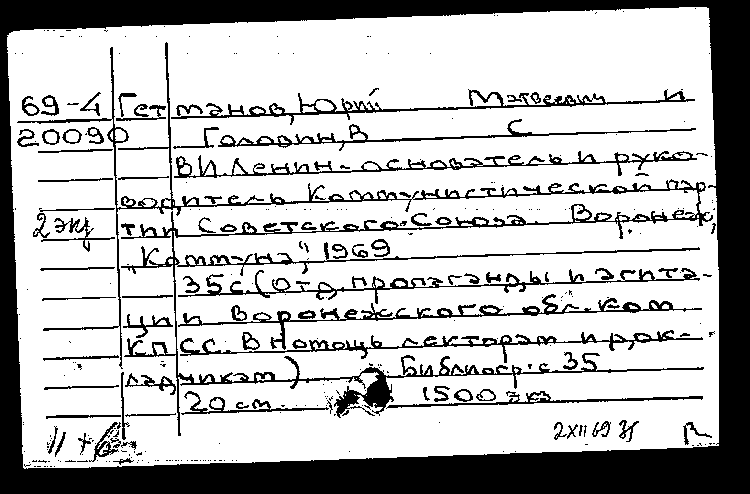 69-4 Гетманов, Юрий Матвеевич и
20090 Головин, В С
В.И. Ленин - основатель и руко-
водитель Коммунистической пар-
2 экз тии Советского Союза. Воронеж,
"Коммуна", 1969.
35 с. (Отд. пропаганды и агита-
ции Воронежского обл. ком.
КПСС. В помощь лекторам и док-
ладчикам). Библиогр: с 35.
20 см. 1500 экз
11 + 2 XII 69